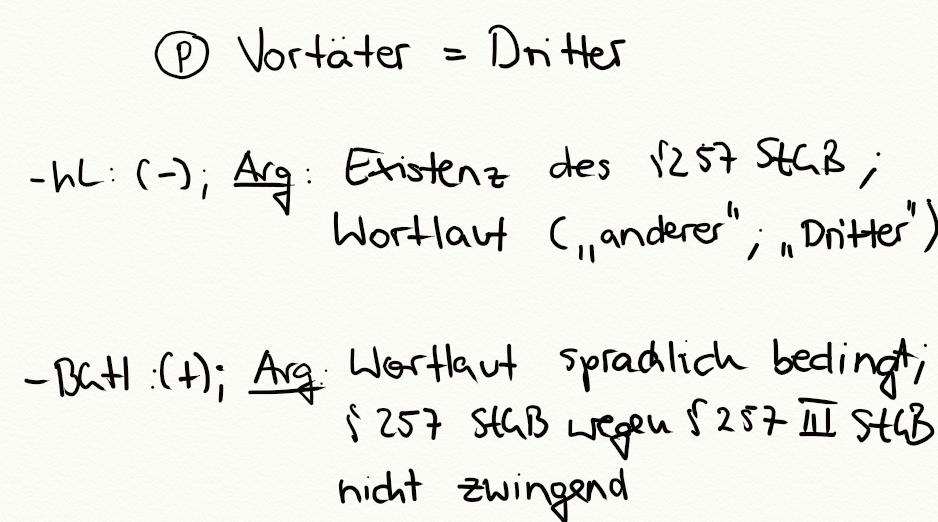 Ⓟ Vortäter = Dritter
- hL: (-); Arg: Existenz des §257 StGB ;
Wortlaut („anderer“; „Dritter“)
- BGH: (+); Arg: Wortlaut sprachlich bedingt;
§ 257 StGB wegen § 257 III StGB
nicht zwingend